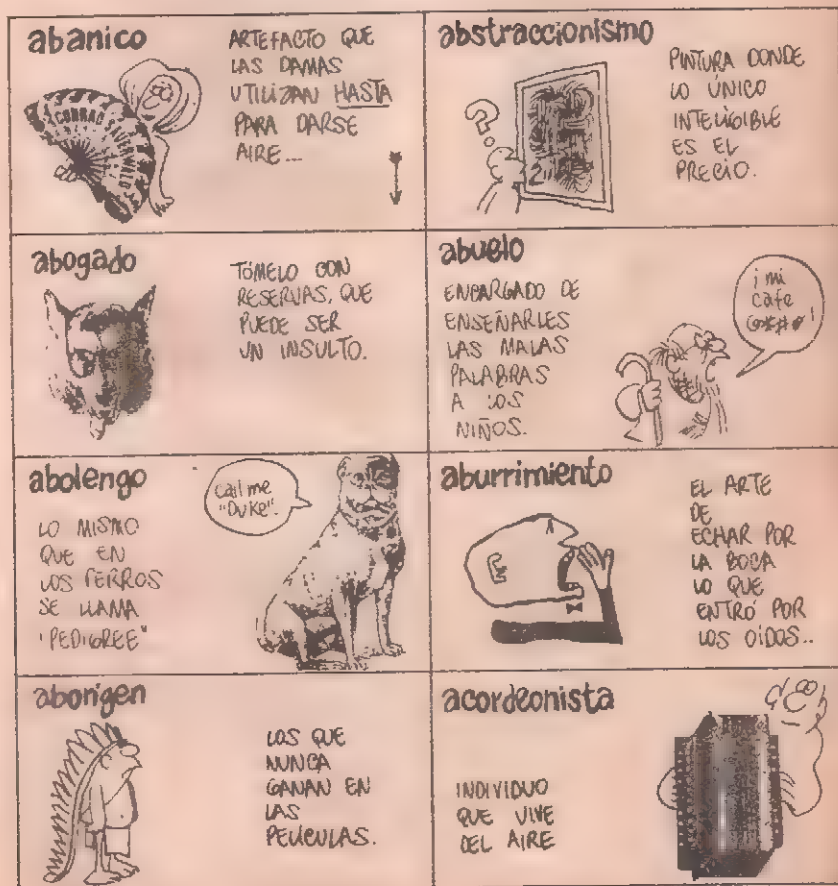 abanico
ARTEFACTO QUE
LAS DAMAS
UTILIZAN HASTA
PARA DARSE
AIRE...
abstraccionismo
PINTURA DONDE
LO ÚNICO
INTELIGIBLE
ES EL
PRECIO.
abogado
TÓMELO CON
RESERVAS, QUE
PUEDE SER
UN INSULTO.
abuelo
ENCARGADO DE
ENSEÑARLES
LAS MALAS
PALABRAS
A LOS
NIÑOS.
¡mi
cafe
@*$#!
abolengo
LO MISMO
QUE EN
LOS PERROS
SE LLAMA
"PEDIGREE"
call me
"DUKE".
aburrimiento
EL ARTE
DE
ECHAR POR
LA BOCA
LO QUE
ENTRÓ POR
LOS OÍDOS..
aborigen
LOS QUE
NUNCA
GANAN EN
LAS
PELÍCULAS.
acordeonista
INDIVIDUO
QUE VIVE
DEL AIRE